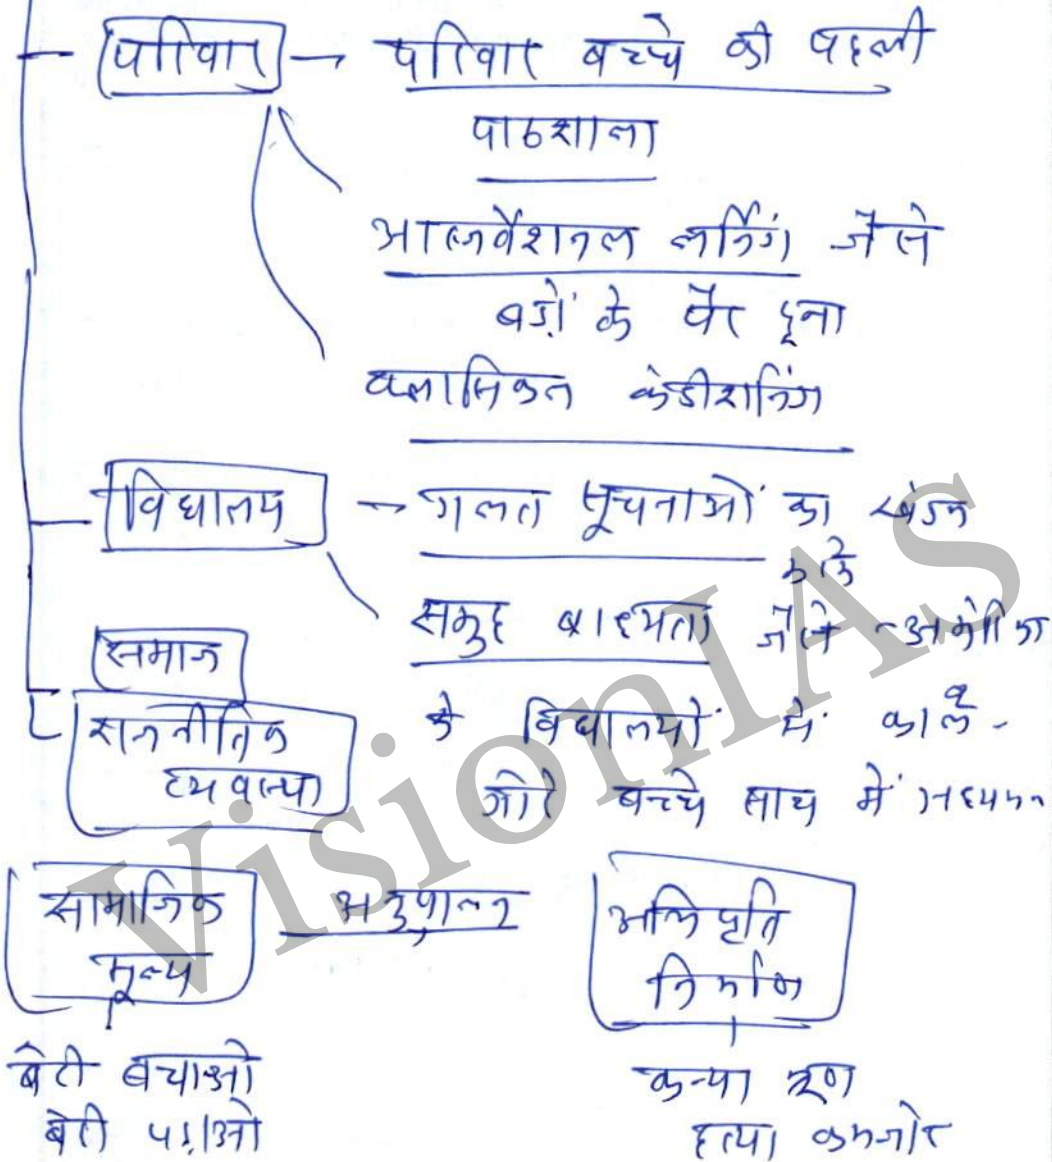 परिवार → परिवार बच्चे की पहली
पाठशाला
आब्जर्वेशनल लर्निंग जैसे
बड़ों के पैर छूना
क्लासिकल कंडीशनिंग
विद्यालय → गलत सूचनाओं का खंडन
करके
समूह बाध्यता जैसे - अमेरिका
के विद्यालयों में काले -
गोरे बच्चे साथ में अध्ययन
समाज
राजनीतिक
व्यवस्था
सामाजिक
मूल्य
अनुपालन
अभिवृत्ति
निर्माण
बेटी बचाओ
बेटी पढ़ाओ
कन्या भ्रूण
हत्या कमजोर
VisionIAS